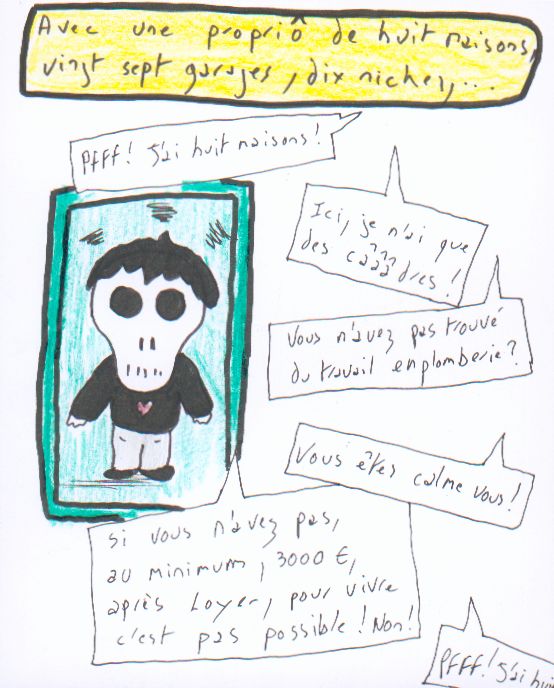 Avec une propriô de huit maisons,
vingt sept garages, dix niches,...
Pfff! J'ai huit maisons!
Ici, je n'ai que
des câââdres!
Vous n'avez pas trouvé
du travail en plomberie?
Vous êtes calme vous!
Si vous n'avez pas,
au minimum, 3000 €,
après Loyer, pour vivre
c'est pas possible! Non!
Pfff! J'ai hui